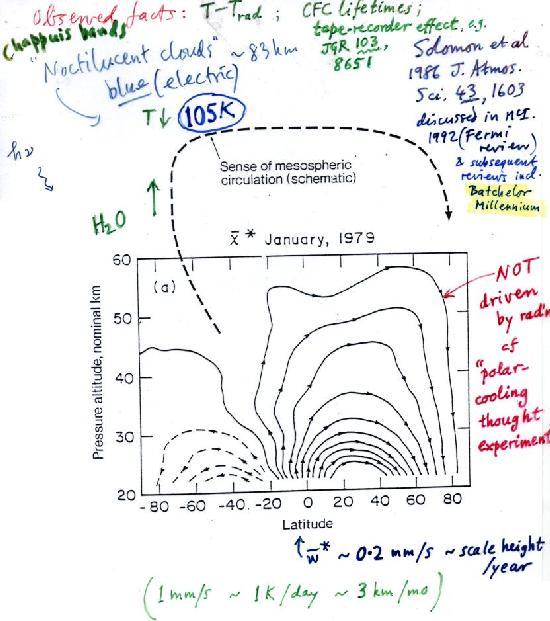 Observed facts: T-Trad ; CFC lifetimes;
Chappuis bands
tape-recorder effect, e.g.
JGR 103,
8651
"Noctilucent clouds" ~ 83 km
blue (electric)
Solomon et al
1986 J. Atmos.
Sci. 43, 1603
discussed in McI.
1992 (Fermi
review)
& subsequent
reviews incl.
Batchelor
Millennium
T↓ 105K
hν
H₂O ↑
Sense of mesospheric
circulation (schematic)
χ̄ * January, 1979
(a)
Pressure altitude, nominal km
60
50
40
30
20
-80 -60 -40 -20 0 20 40 60 80
Latitude
NOT
driven
by rad'n
cf
"polar-
cooling
thought
experiment
↑ w̄* ~ 0.2 mm/s ~ scale height
/year
(1 mm/s ~ 1K/day ~ 3 km/mo)